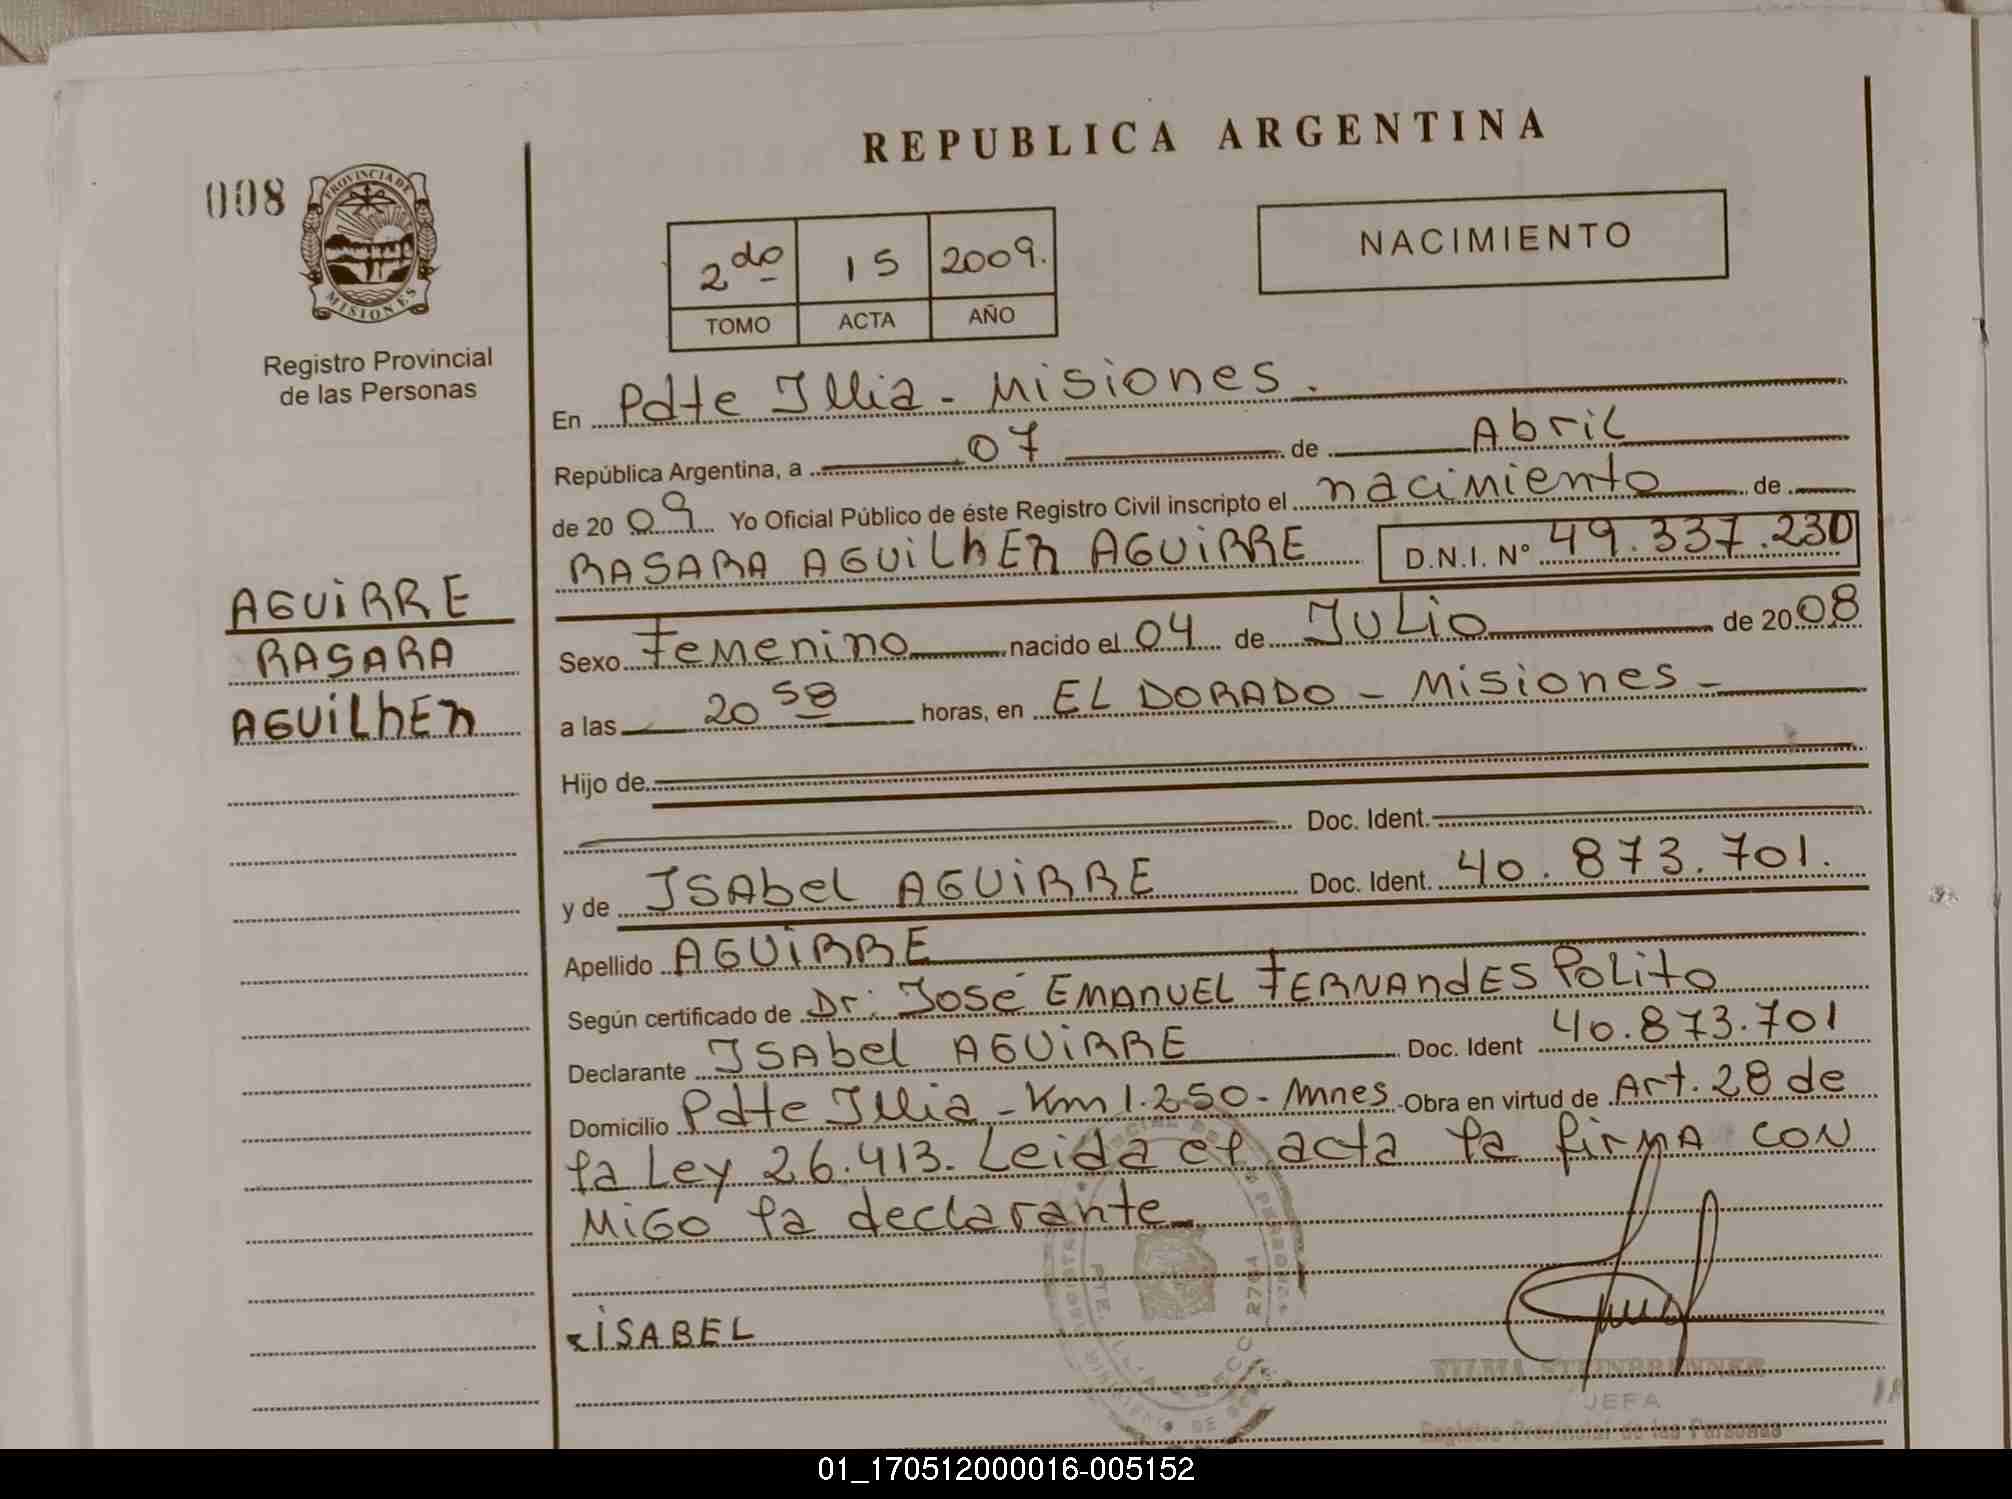 REPUBLICA ARGENTINA
008
PROVINCIA DE
MISIONES
Registro Provincial
de las Personas
NACIMIENTO
2do 15 2009.
TOMO ACTA AÑO
En Pdte Illia - Misiones.
República Argentina, a 07 de Abril
de 20 09 Yo Oficial Público de éste Registro Civil inscripto el nacimiento de
RASARA AGUILHEN AGUIRRE D.N.I. Nº 49.337.230
AGUIRRE
RASARA
AGUILHEN
Sexo Femenino nacido el 04 de Julio de 20 08
a las 20 58 horas, en EL DORADO - Misiones -
Hijo de
Doc. Ident.
y de ISAbel AGUIRRE Doc. Ident. 40.873.701.
Apellido AGUIRRE
Según certificado de Dr: José EMANUEL FERNANdES POLito
Declarante ISAbel AGUIRRE Doc. Ident 40.873.701
Domicilio Pdte Illia - Km 1.250 - Mnes Obra en virtud de Art. 28 de
la Ley 26.413. Leida el acta la firMA CON
MIGO la declarante
x iSABEL
VILMA STEINBRENNER
JEFA
Registro Provincial de las Personas
01_170512000016-005152